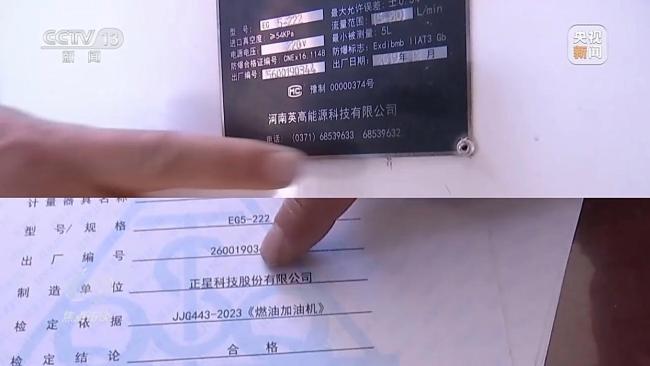 CCTV 13
新闻
央视
新闻
最大允许误差:
型号: EG 5-222
流量范围: L/min
进口真空度: ≥54KPa
最小被测量: 5L
电源电压: 220V
防爆标志: Exdibmb IIAT3 Gb
防爆合格证编号: CNEx16.1148
出厂日期: 年 月
出厂编号:
MC 豫制 00000374号
河南英高能源科技有限公司
电话: (0371) 68539633 68539632
计量器具名称
型号/规格 EG5-222
出厂编号 26001903
制造单位 正星科技股份有限公司
检定依据 JJG443-2023《燃油加油机》
检定结论 合格